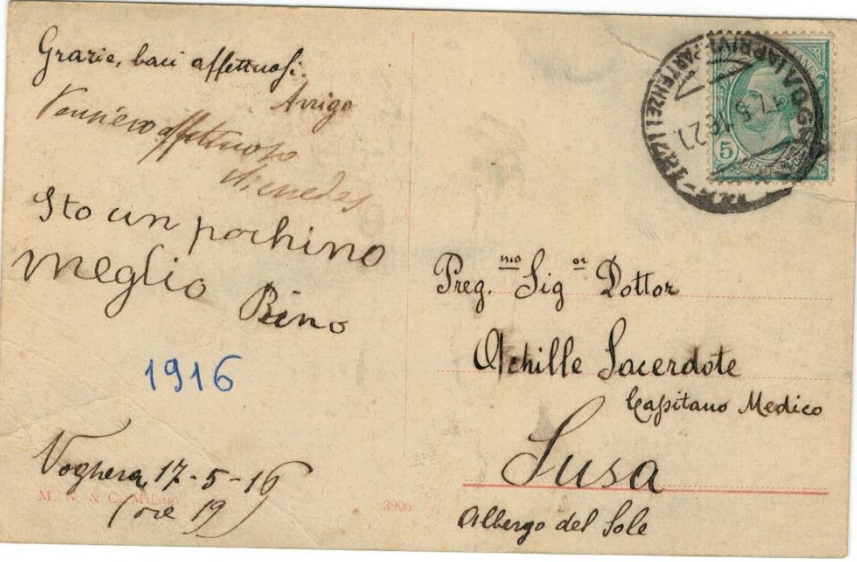 Grazie, baci affettuosi.
Arrigo
Pensiero affettuoso
Sto un pochino
meglio Bino
1916
Voghera, 17-5-16
(ore 19)
M. N. & C. Milano
3906
VOGHERA
ARRIVI-PARTENZE
17.5.16.21
5
Preg.mo Sig.or Dottor
Achille Sacerdote
Capitano Medico
Susa
Albergo del Sole